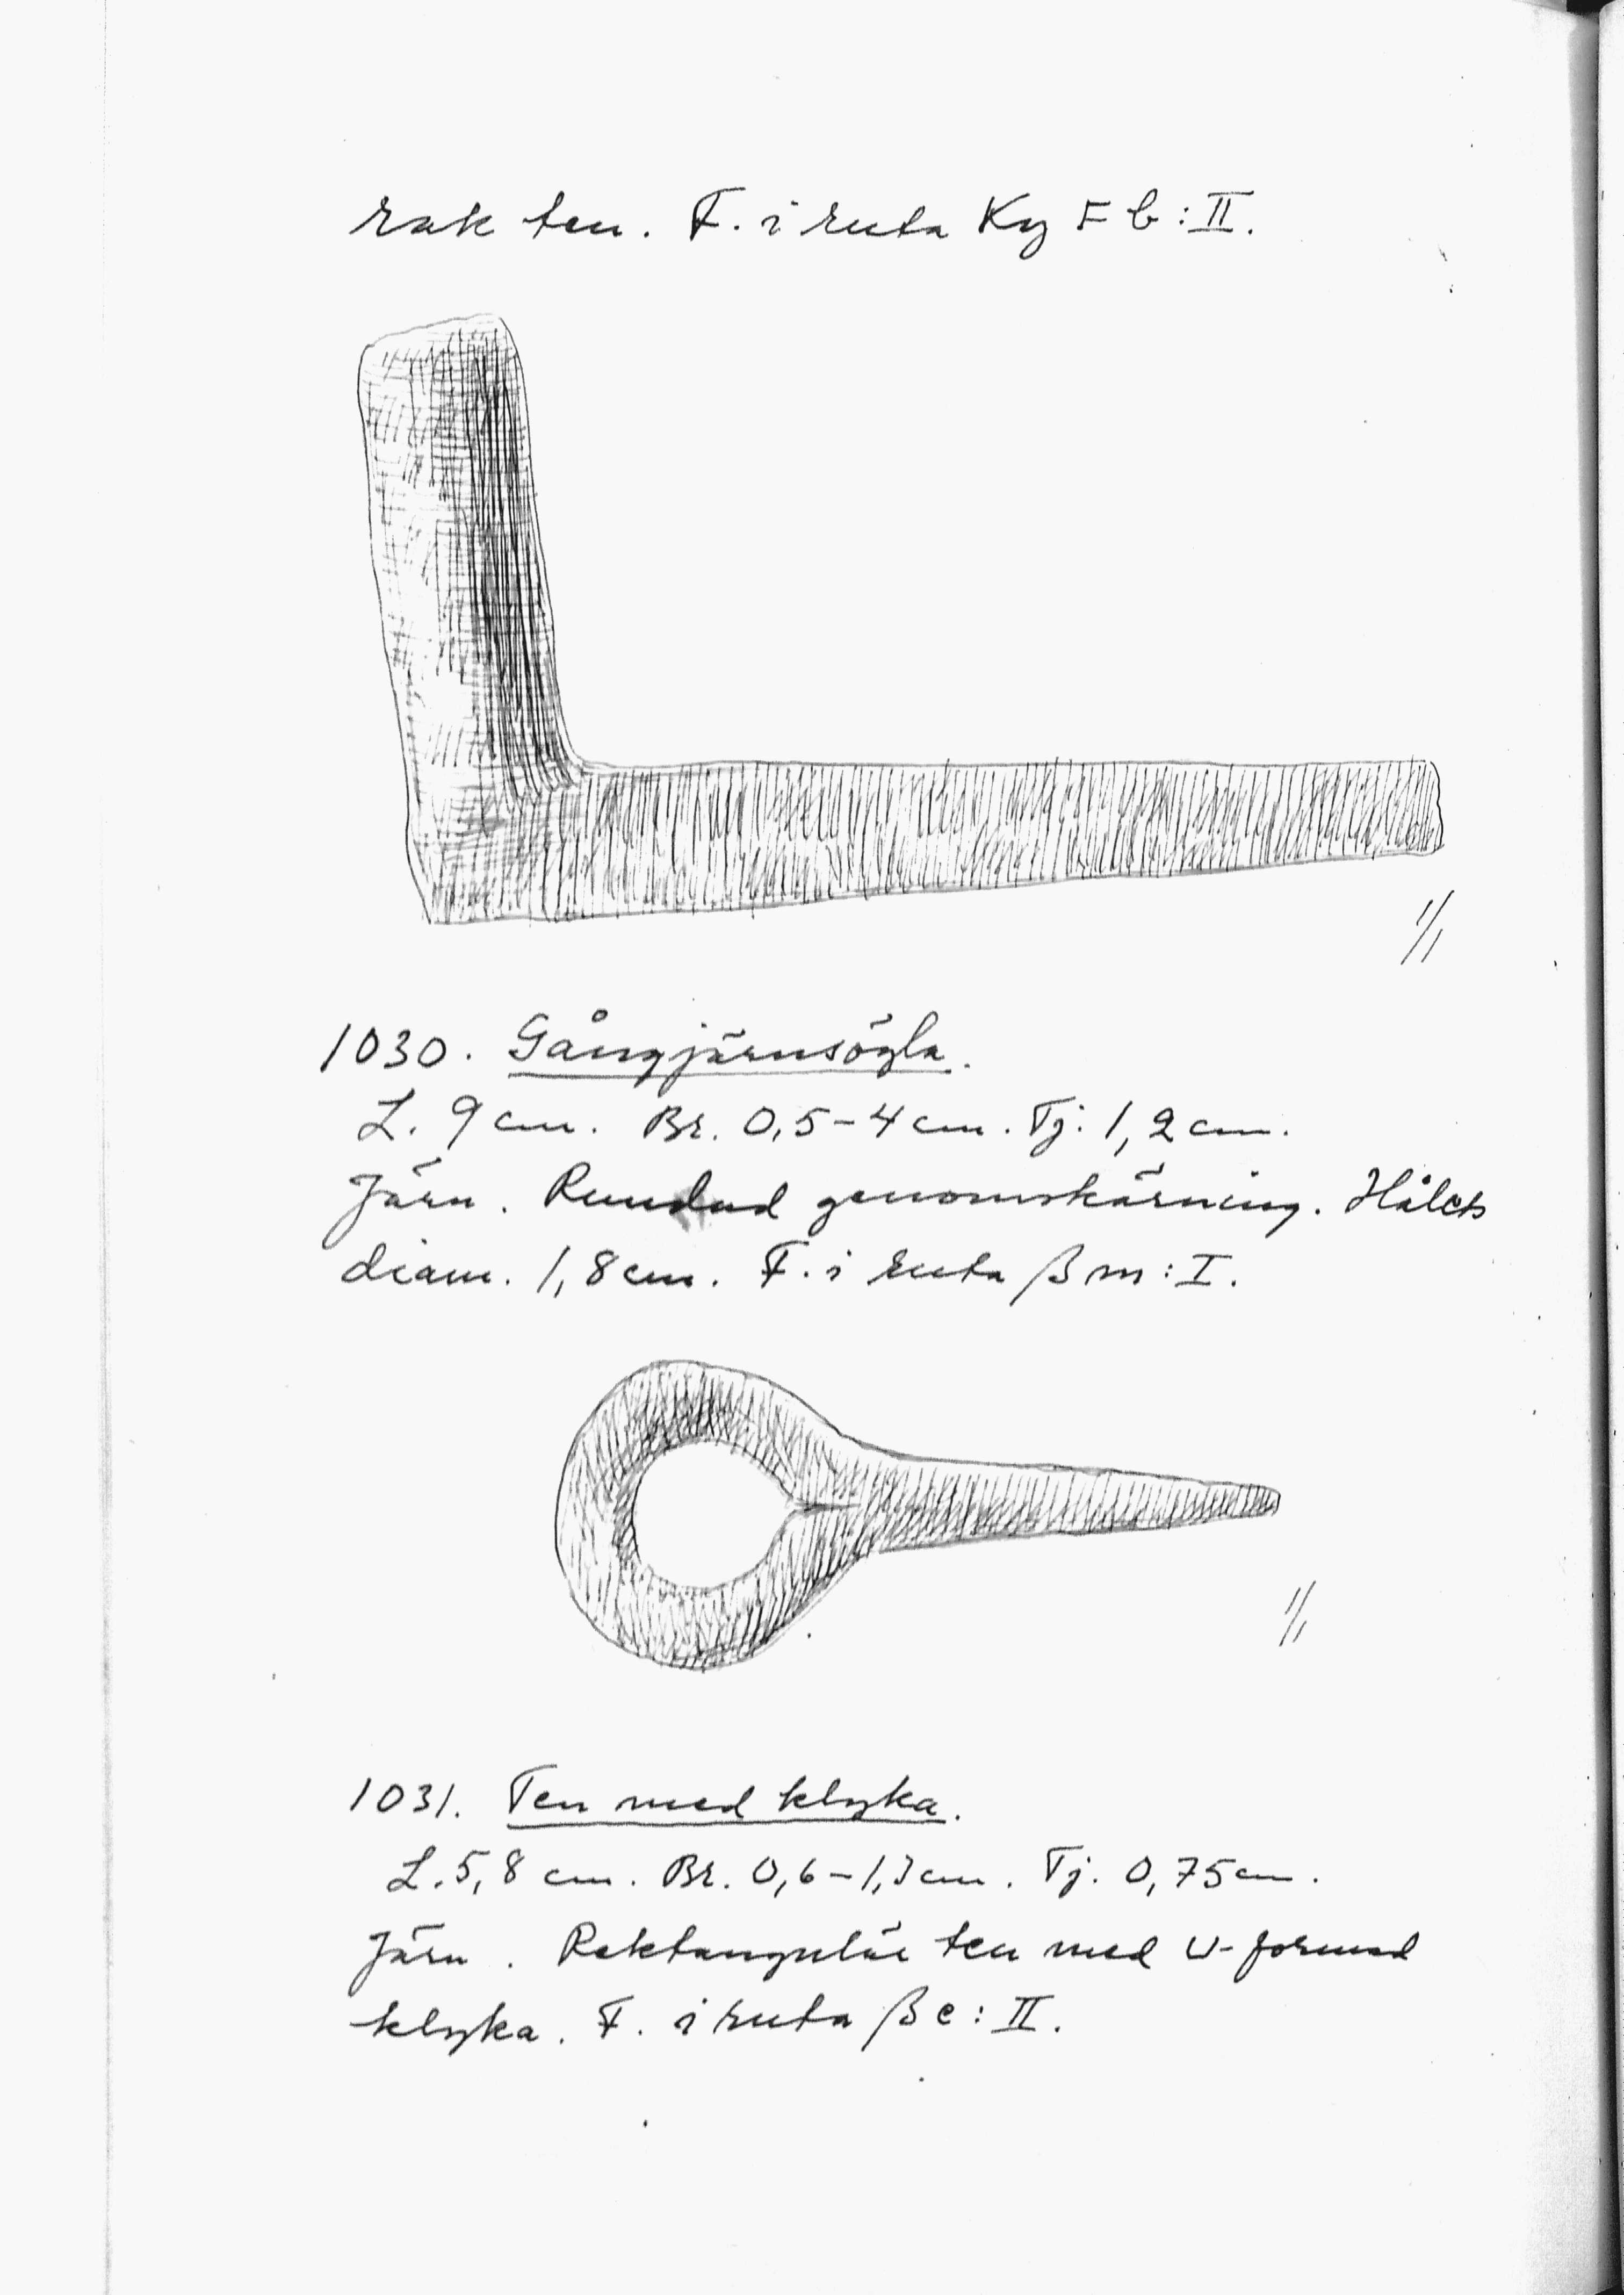 rak ten. F. i ruta Ky F b : II.
1/1
1030. Gångjärnsögla.
L. 9 cm. Br. 0,5 – 4 cm. Tj. 1,2 cm.
Järn. Rundad genomskärning. Hålets
diam. 1,8 cm. F. i ruta β m : I.
1/1
1031. Ten med klyka.
L. 5,8 cm. Br. 0,6 – 1,3 cm. Tj. 0,75 cm.
Järn. Rektangulär ten med U-formad
klyka. F. i ruta β e : II.